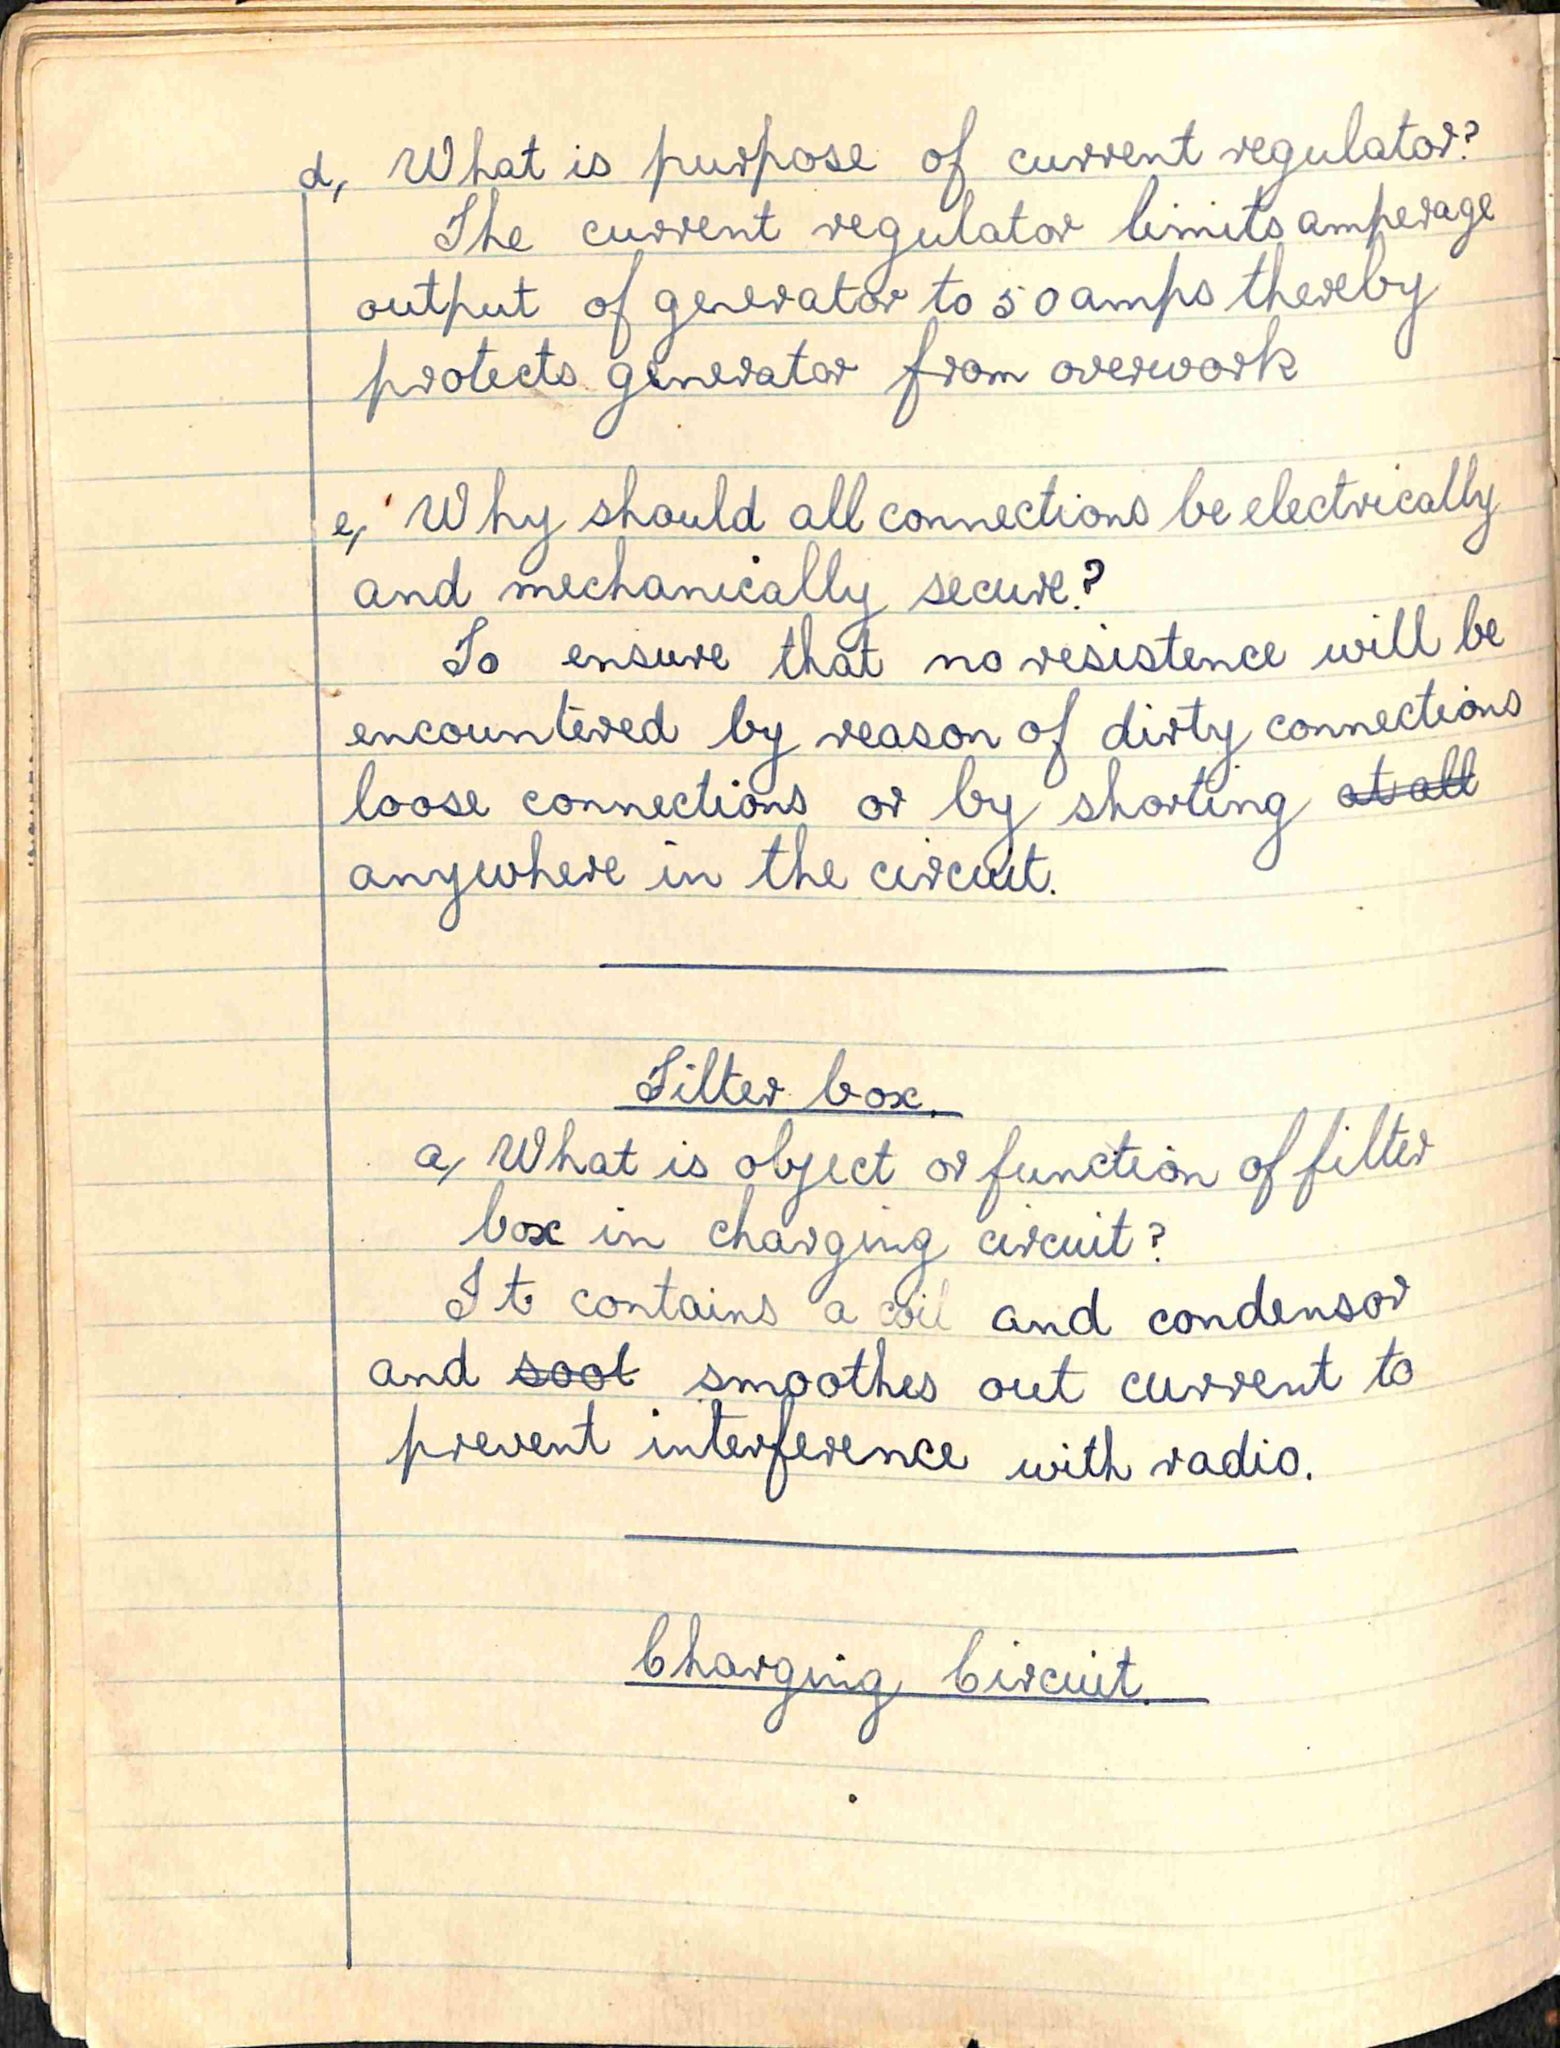 d, What is purpose of current regulator?
The current regulator limits amperage
output of generator to 50 amps thereby
protects generator from overwork
e, Why should all connections be electrically
and mechanically secure?
To ensure that no resistence will be
encountered by reason of dirty connections
loose connections or by shorting at all
anywhere in the circuit.
Filter box.
a, What is object or function of filter
box in charging circuit?
It contains a coil and condensor
and soot smoothes out current to
prevent interference with radio.
Charging Circuit.